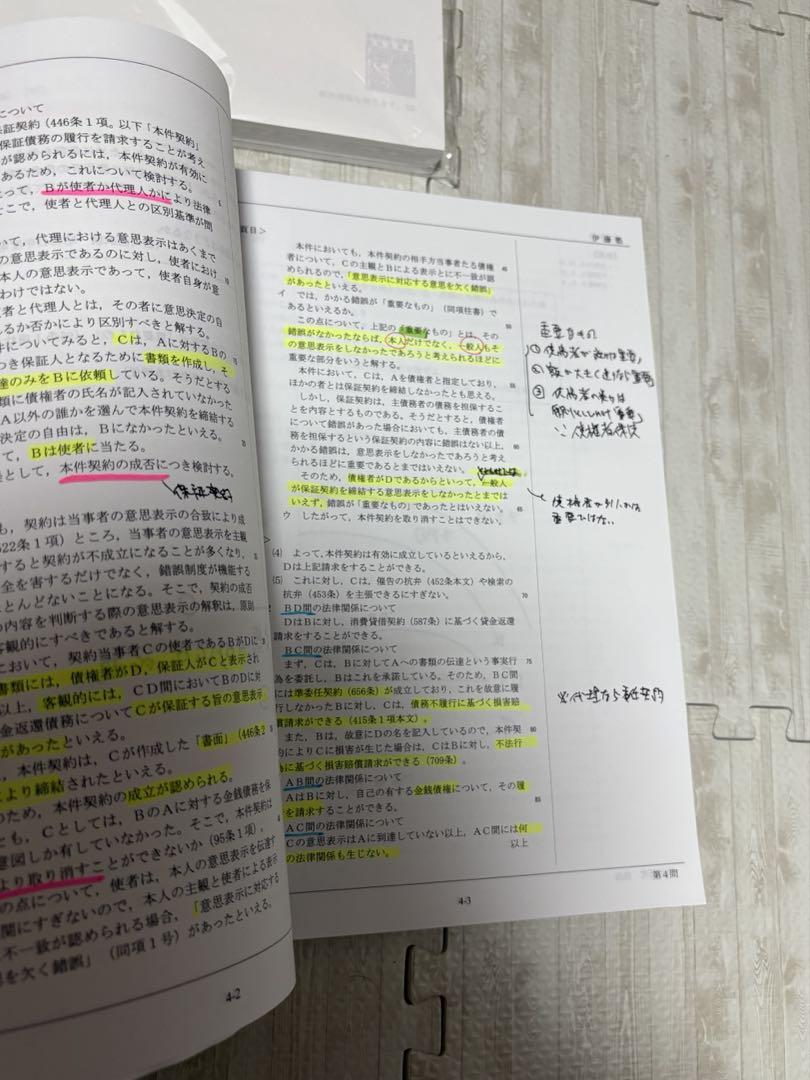 について
保証契約（446条1項。以下「本件契約」
保証債務の履行を請求することが考え
が認められるには、本件契約が有効に
あるため、これについて検討する。
たって、Bが使者か代理人かにより法律
そこで、使者と代理人との区別基準が問
いて、代理における意思表示はあくまで
の意思表示であるのに対し、使者におけ
本人の意思表示であって、使者自身が意
わけではない。
使者と代理人とは、その者に意思決定の自
れるか否かにより区別すべきと解する。
件についてみると、Cは、Aに対するBの
つき保証人となるために書類を作成し、そ
達のみをBに依頼している。そうだとする
類に債権者の氏名が記入されていなかった
A以外の誰かを選んで本件契約を締結する
決定の自由は、Bになかったといえる。
て、Bは使者に当たる。
として、本件契約の成否につき検討する。
も、契約は当事者の意思表示の合致により成
522条1項）ところ、当事者の意思表示を主観
すると契約が不成立になることが多くなり、
全を害するだけでなく、錯誤制度が機能する
とんどないことになる。そこで、契約の成否
の内容を判断する際の意思表示の解釈は、原則
客観的にすべきであると解する。
において、契約当事者Cの使者であるBがDに
書類には、債権者がD、保証人がCと表示され
以上、客観的には、CD間においてBのDに対
金返還債務についてCが保証する旨の意思表示
があったといえる。
、本件契約は、Cが作成した「書面」（446条2
より締結されたといえる。
のため、本件契約の成立が認められる。
とも、Cとしては、BのAに対する金銭債務を保
意図しか有していなかった。そこで、本件契約は
より取り消すことができないか（95条1項）。
の点について、使者は、本人の意思表示を伝達す
関にすぎないので、本人の主観と使者による表示
不一致が認められる場合、「意思表示に対応する
思を欠く錯誤」（同項1号）があったといえる。
4-2
伊藤塾
頁目＞
本件においても、本件契約の相手方当事者たる債権
者について、Cの主観とBによる表示とに不一致が認
められるので、「意思表示に対応する意思を欠く錯誤」
があったといえる。
イ では、かかる錯誤が「重要なもの」（同項柱書）で
あるといえるか。
この点について、上記の「重要なもの」とは、その
錯誤がなかったならば、本人だけでなく、一般人もそ
の意思表示をしなかったであろうと考えられるほどに
重要な部分をいうと解する。
本件において、Cは、Aを債権者と指定しており、
ほかの者とは保証契約を締結しなかったとも思える。
しかし、保証契約は、主債務者の債務を担保するこ
とを内容とするものである。そうだとすると、債権者
について錯誤があった場合においても、主債務者の債
務を担保するという保証契約の内容に錯誤はない以上、
かかる錯誤は、意思表示をしなかったであろうと考え
られるほどに重要であるとまではいえない。
そのため、債権者がDであるからといって、一般人
が保証契約を締結する意思表示をしなかったとまでは
いえず、錯誤が「重要なもの」であったとはいえない。
ウ したがって、本件契約を取り消すことはできない。
(4) よって、本件契約は有効に成立しているといえるから、
Dは上記請求をすることができる。
(5) これに対し、Cは、催告の抗弁（452条本文）や検索の
抗弁（453条）を主張できるにすぎない。
BD間の法律関係について
DはBに対し、消費貸借契約（587条）に基づく貸金返還
請求をすることができる。
BC間の法律関係について
まず、Cは、Bに対してAへの書類の伝達という事実行
為を委託し、Bはこれを承諾している。そのため、BC間
には準委任契約（656条）が成立しており、これを故意に履
行しなかったBに対し、Cは、債務不履行に基づく損害賠
償請求ができる（415条1項本文）。
また、Bは、故意にDの名を記入しているので、本件契
約によりCに損害が生じた場合は、CはBに対し、不法行
為に基づく損害賠償請求ができる（709条）。
AB間の法律関係について
AはBに対し、自己の有する金銭債権について、その履
を請求することができる。
AC間の法律関係について
Cの意思表示はAに到達していない以上、AC間には何
の法律関係も生じない。
以上
第4問
4-3